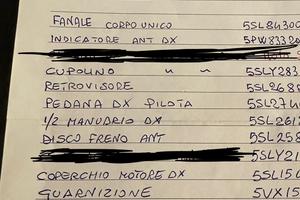 FANALE CORPO UNICO 5SL84300
INDICATORE ANT DX 5PW8332
CUPOLINO " " 5SLY283
RETROVISORE 5SL268
PEDANA DX PILOTA 5SL274
1/2 MANUBRIO DX 5SL261
DISCO FRENO ANT 5SL258
5LY21
COPERCHIO MOTORE DX 5SL154
GUARNIZIONE 5VX15